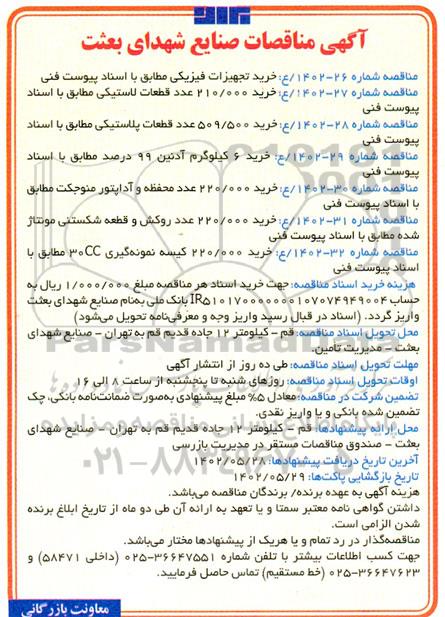 آگهی مناقصات صنایع شهدای بعثت
مناقصه شماره ۲۶-۱۴۰۲/ع: خرید تجهیزات فیزیکی مطابق با اسناد پیوست فنی
مناقصه شماره ۲۷-۱۴۰۲/ع: خرید ۲۱۰/۰۰۰ عدد قطعات لاستیکی مطابق با اسناد
پیوست فنی
مناقصه شماره ۲۸-۱۴۰۲/ع: خرید ۵۰۹/۵۰۰ عدد قطعات پلاستیکی مطابق با اسناد
پیوست فنی
مناقصه شماره ۲۹-۱۴۰۲/ع: خرید ۶ کیلوگرم آدنین ۹۹ درصد مطابق با اسناد
پیوست فنی
مناقصه شماره ۳۰-۱۴۰۲/ع: خرید ۲۲۰/۰۰۰ عدد محفظه و آداپتور منوجکت مطابق
با اسناد پیوست فنی
مناقصه شماره ۳۱-۱۴۰۲/ع: خرید ۲۲۰/۰۰۰ عدد روکش و قطعه شکستنی مونتاژ
شده مطابق با اسناد پیوست فنی
مناقصه شماره ۳۲-۱۴۰۲/ع: خرید ۲۲۰/۰۰۰ کیسه نمونه‌گیری ۳۰CC مطابق با
اسناد پیوست فنی
هزینه خرید اسناد مناقصه: جهت خرید اسناد هر مناقصه مبلغ ۱/۰۰۰/۰۰۰ ریال به
حساب IR۵۱۰۱۷۰۰۰۰۰۰۰۱۰۷۰۷۴۹۴۹۰۰۴ بانک ملی به‌نام صنایع شهدای بعثت
واریز گردد. (اسناد در قبال رسید واریز وجه و معرفی‌نامه تحویل می‌شود)
محل تحویل اسناد مناقصه: قم - کیلومتر ۱۲ جاده قدیم قم به تهران - صنایع شهدای
بعثت - مدیریت تامین.
مهلت تحویل اسناد مناقصه: طی ده روز از انتشار آگهی
اوقات تحویل اسناد مناقصه: روزهای شنبه تا پنجشنبه از ساعت ۸ الی ۱۶
تضمین شرکت در مناقصه: معادل ۵% مبلغ پیشنهادی به‌صورت ضمانت‌نامه بانکی، چک
تضمین شده بانکی و یا واریز نقدی.
محل ارائه پیشنهادها: قم - کیلومتر ۱۲ جاده قدیم قم به تهران - صنایع شهدای
بعثت - صندوق مناقصات مستقر در مدیریت بازرسی
آخرین تاریخ دریافت پیشنهادها: ۱۴۰۲/۰۵/۲۸
تاریخ بازگشایی پاکت‌ها: ۱۴۰۲/۰۵/۲۹
هزینه آگهی به عهده برنده/ برندگان مناقصه می‌باشد.
داشتن گواهی نامه معتبر سمتا و یا تعهد به ارائه آن طی دو ماه از تاریخ ابلاغ برنده
شدن الزامی است.
مناقصه‌گذار در رد تمام و یا هریک از پیشنهادها مختار می‌باشد.
جهت کسب اطلاعات بیشتر با تلفن شماره ۳۶۶۴۷۵۵۱-۰۲۵ (داخلی ۵۸۴۷۱) و
۳۶۶۴۷۶۲۳-۰۲۵ (خط مستقیم) تماس حاصل فرمایید.
معاونت بازرگانی